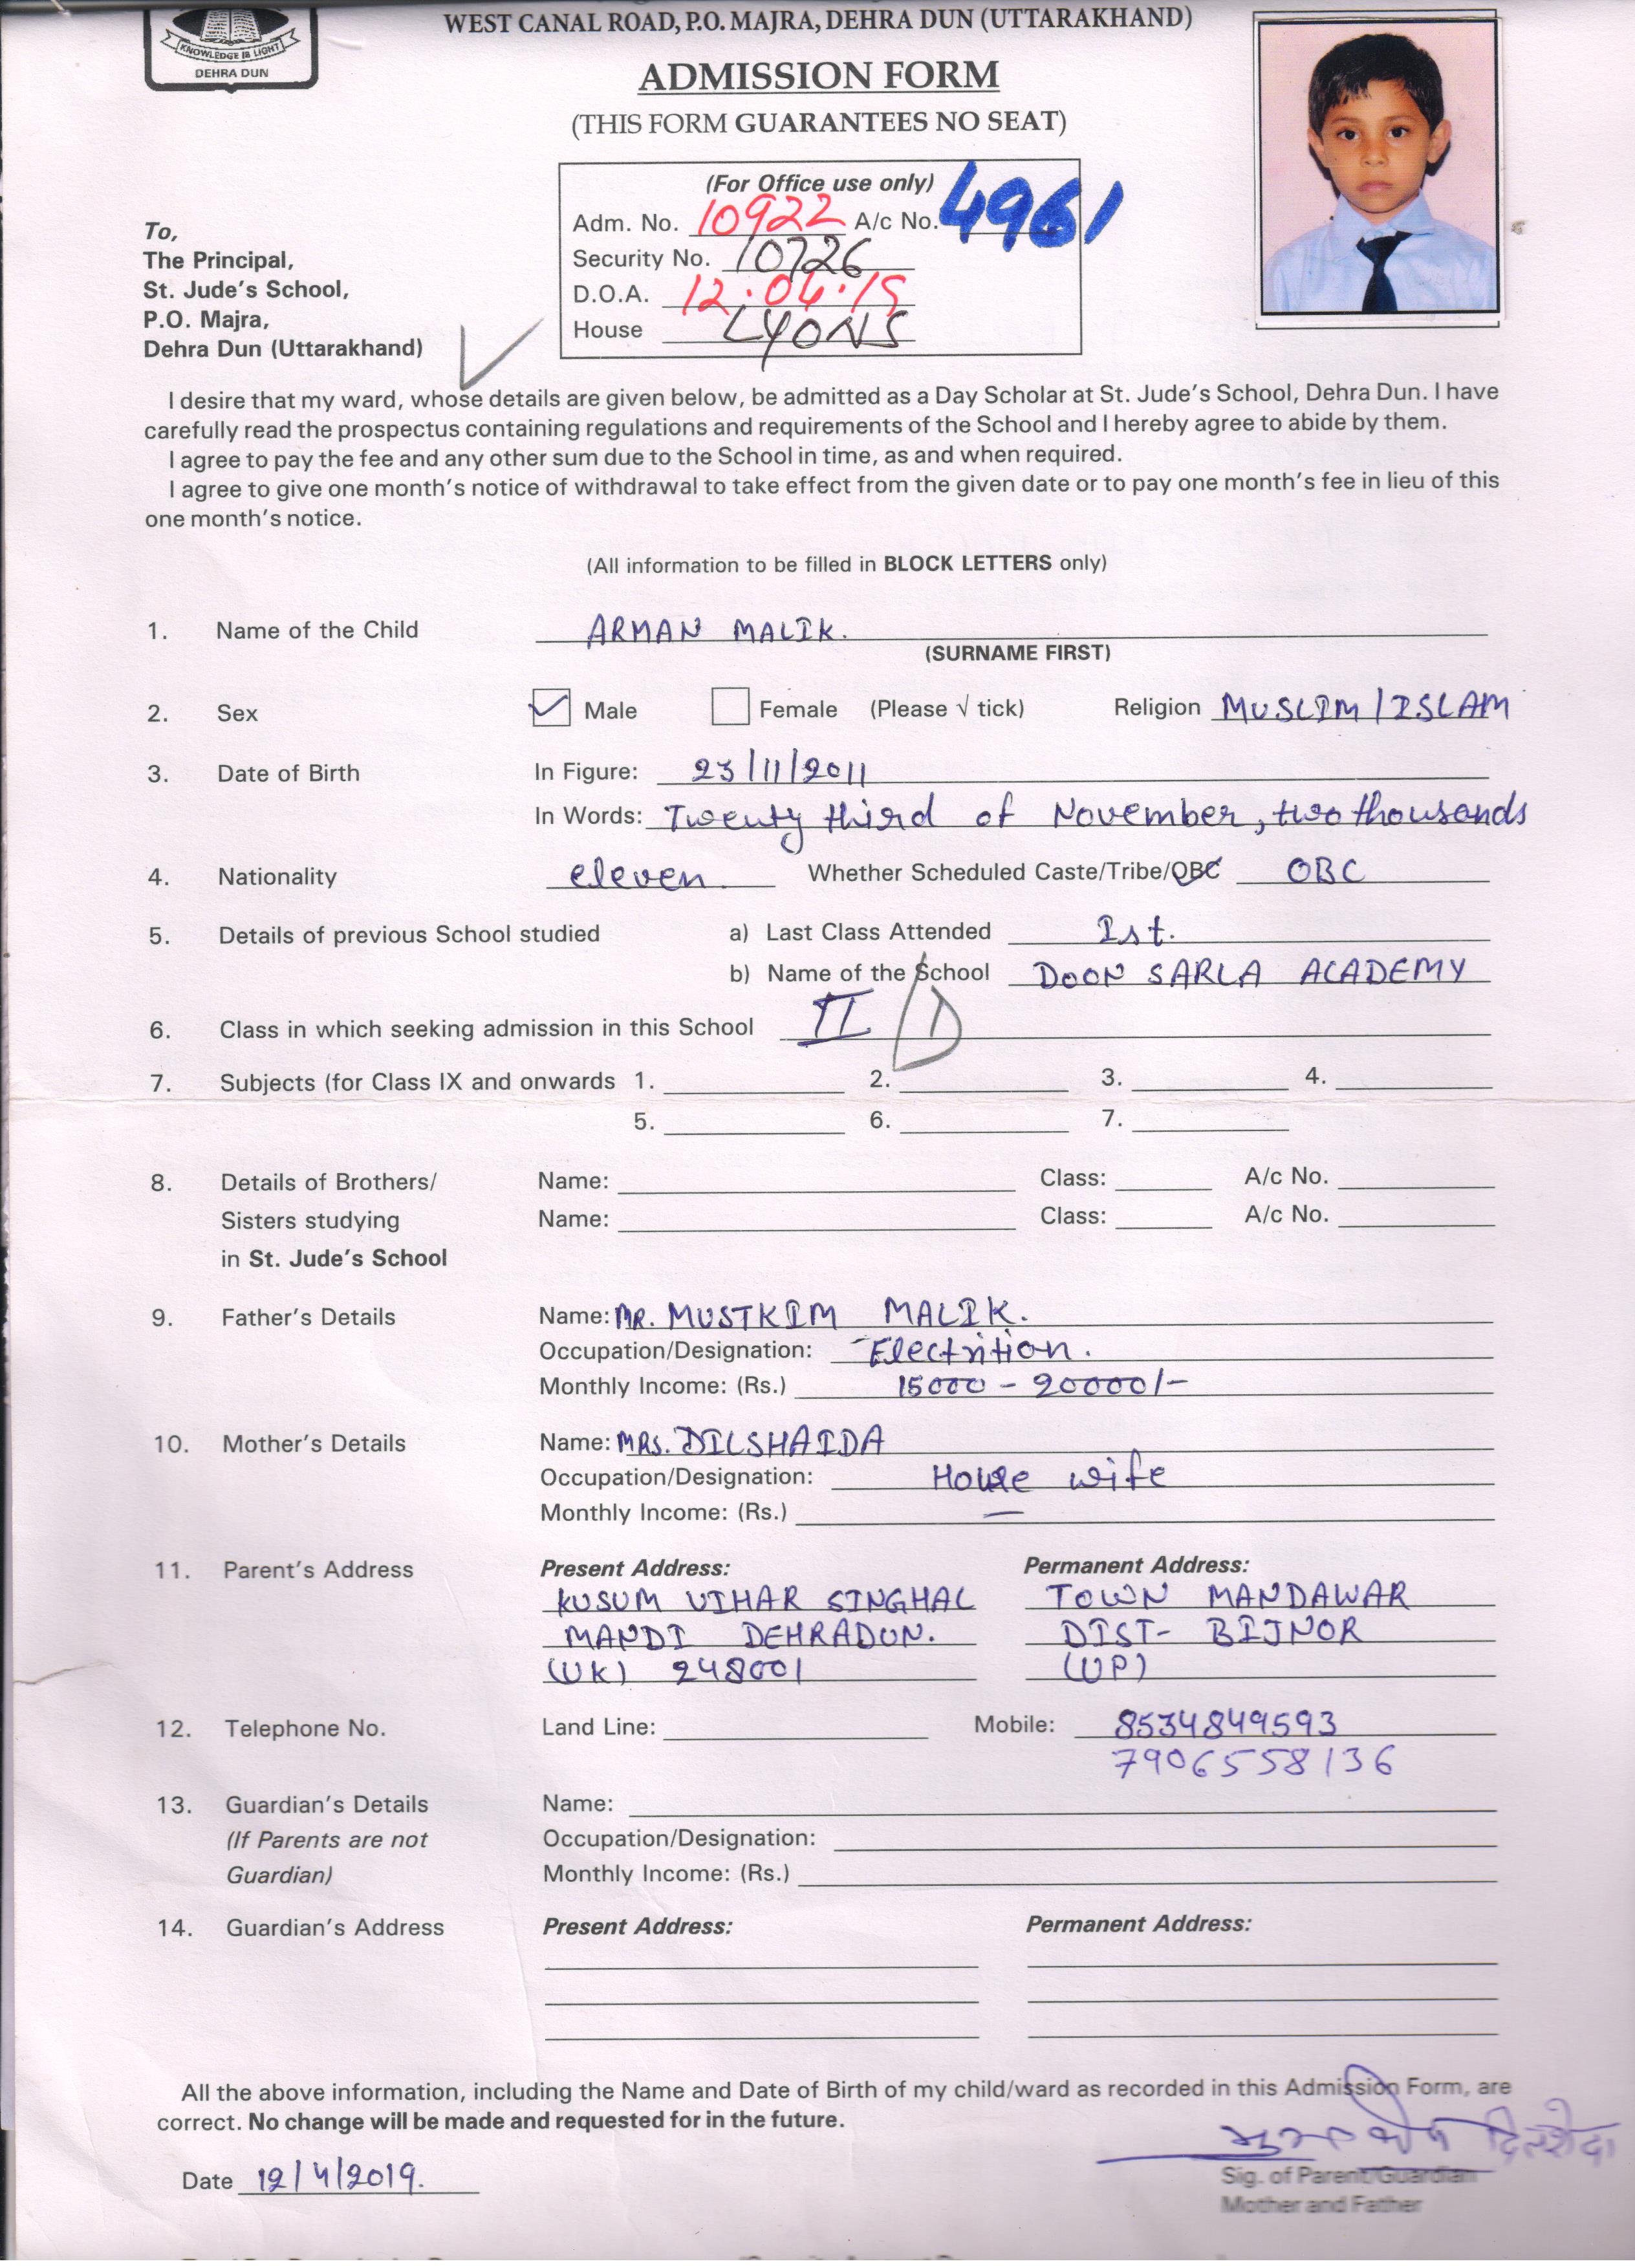 KNOWLEDGE IS LIGHT
DEHRA DUN
WEST CANAL ROAD, P.O. MAJRA, DEHRA DUN (UTTARAKHAND)
ADMISSION FORM
(THIS FORM GUARANTEES NO SEAT)
(For Office use only)
Adm. No. 10922 A/c No. 4961
Security No. 10726
D.O.A. 12.04.19
House LYONS
To,
The Principal,
St. Jude's School,
P.O. Majra,
Dehra Dun (Uttarakhand)
I desire that my ward, whose details are given below, be admitted as a Day Scholar at St. Jude's School, Dehra Dun. I have
carefully read the prospectus containing regulations and requirements of the School and I hereby agree to abide by them.
I agree to pay the fee and any other sum due to the School in time, as and when required.
I agree to give one month's notice of withdrawal to take effect from the given date or to pay one month's fee in lieu of this
one month's notice.
(All information to be filled in BLOCK LETTERS only)
1. Name of the Child ARMAN MALIK.
(SURNAME FIRST)
2. Sex Male Female (Please √ tick) Religion MUSLIM / ISLAM
3. Date of Birth In Figure: 23/11/2011
In Words: Twenty third of November, two thousands
4. Nationality eleven Whether Scheduled Caste/Tribe/OBC OBC
5. Details of previous School studied a) Last Class Attended Ist.
b) Name of the School DOON SARLA ACADEMY
6. Class in which seeking admission in this School II / D
7. Subjects (for Class IX and onwards 1. 2. 3. 4.
5. 6. 7.
8. Details of Brothers/ Name: Class: A/c No.
Sisters studying Name: Class: A/c No.
in St. Jude's School
9. Father's Details Name: MR. MUSTKIM MALIK.
Occupation/Designation: Electrition.
Monthly Income: (Rs.) 15000 - 20000/-
10. Mother's Details Name: MRS. DILSHAIDA
Occupation/Designation: House wife
Monthly Income: (Rs.) —
11. Parent's Address Present Address: Permanent Address:
KUSUM VIHAR SINGHAL TOWN MANDAWAR
MANDI DEHRADUN. DIST- BIJNOR
(UK) 248001 (UP)
12. Telephone No. Land Line: Mobile: 8534849593
7906558136
13. Guardian's Details Name:
(If Parents are not Occupation/Designation:
Guardian) Monthly Income: (Rs.)
14. Guardian's Address Present Address: Permanent Address:
All the above information, including the Name and Date of Birth of my child/ward as recorded in this Admission Form, are
correct. No change will be made and requested for in the future.
दिलशेदा
Date 12/4/2019. Sig. of Parent/Guardian
Mother and Father